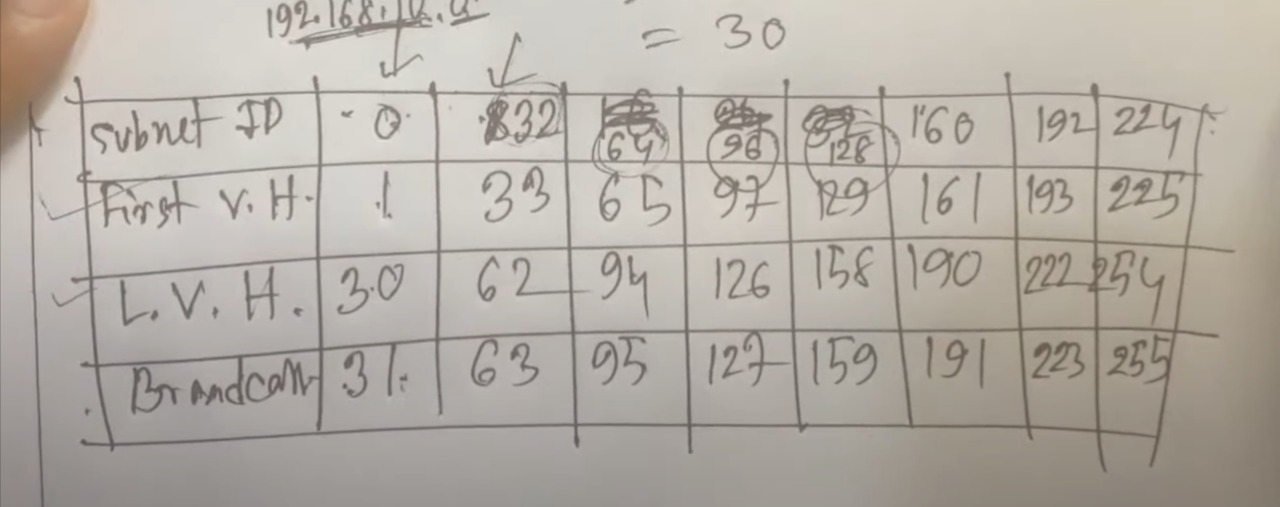 192.168.10.0
= 30
Subnet ID .0. 32 64 96 128 160 192 224
First V.H. 1 33 65 97 129 161 193 225
L.V.H. 30 62 94 126 158 190 222 254
Brandcast 31. 63 95 127 159 191 223 255